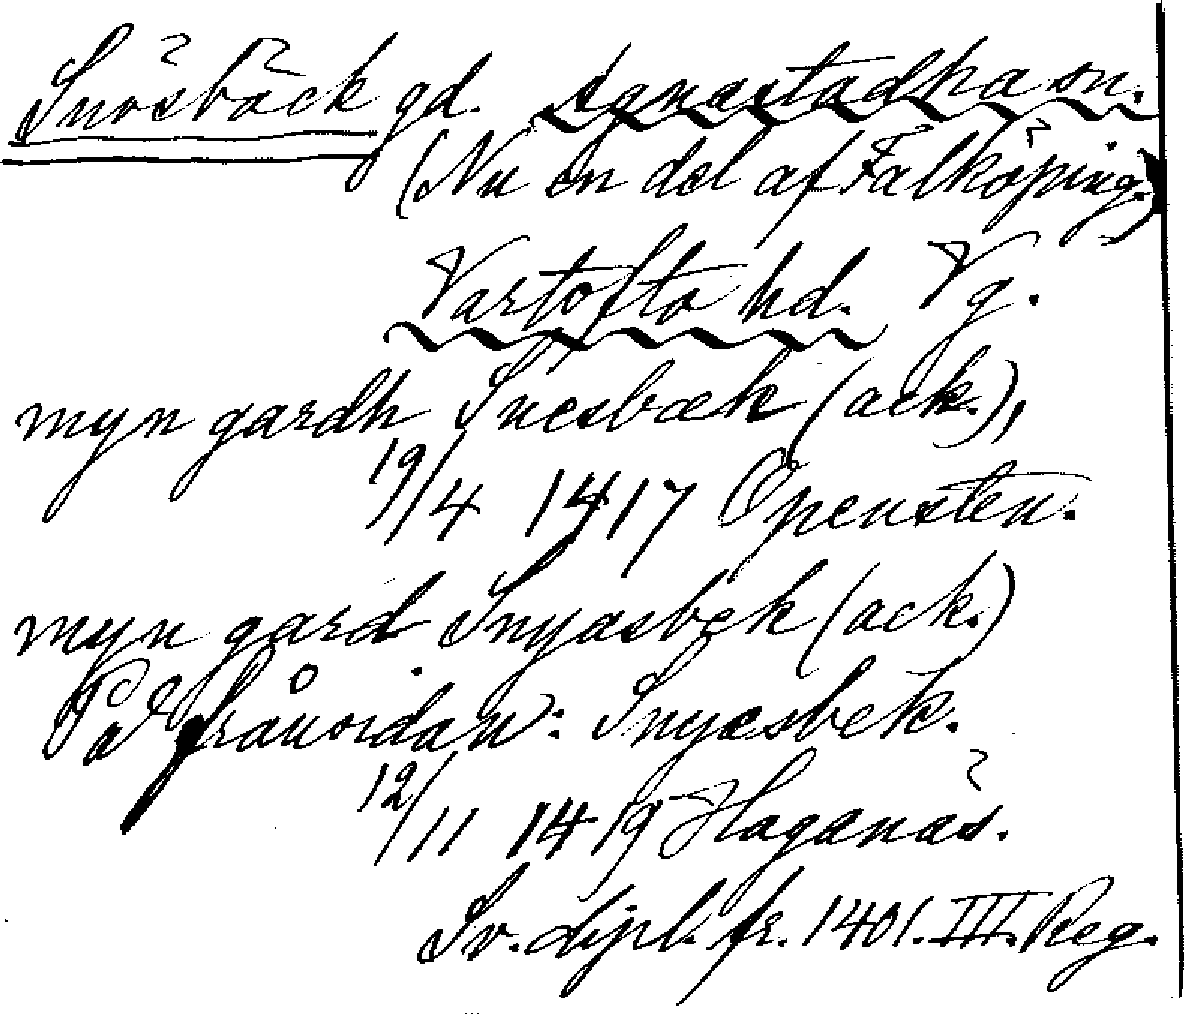 Snösbäck gd. Agnestadha sn.
(Nu en del af Falköping.)
Vartofta hd. Vg.
myn gardh Snesbæk (ack.),
19/4 1417 Öpensten.
myn gard Snyæsbek (ack.)
På frånsidan: Snyæsbek.
12/11 1419 Haganäs.
Sv. dipl. fr. 1401. III. Reg.